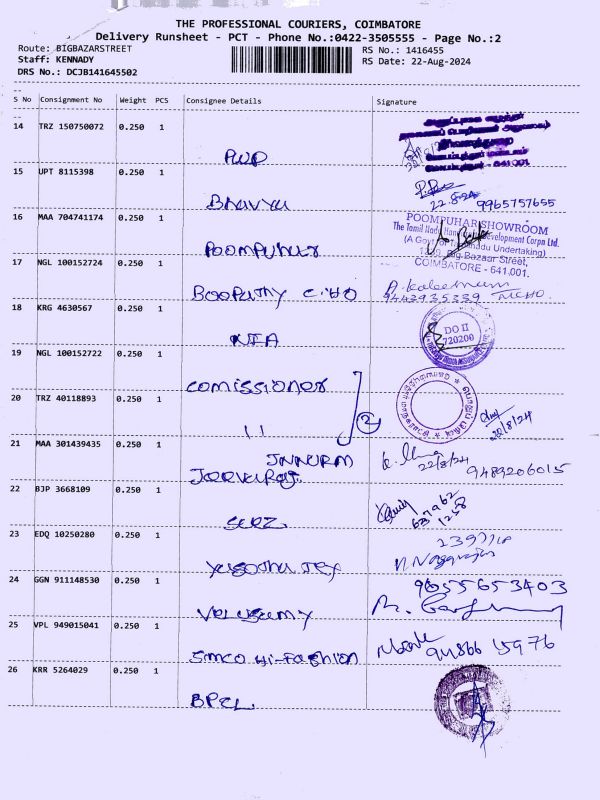 THE PROFESSIONAL COURIERS, COIMBATORE
Delivery Runsheet - PCT - Phone No.:0422-3505555 - Page No.:2
Route: BIGBAZARSTREET
RS No.: 1416455
Staff: KENNADY
RS Date: 22-Aug-2024
DRS No.: DCJB141645502
S No Consignment No Weight PCS Consignee Details Signature
14 TRZ 150750072 0.250 1
PWD
கோயம்புத்தூர் - 641 001.
15 UPT 8115398 0.250 1
Bhavya
22.8.24 9965757655
16 MAA 704741174 0.250 1
Poompuhar
POOMPUHAR SHOWROOM
The Tamil Nadu Handicrafts Development Corpn Ltd.
(A Govt. of Tamilnadu Undertaking)
Big Bazaar Street,
COIMBATORE - 641.001.
17 NGL 100152724 0.250 1
Boopathy C.HO
9443935389
18 KRG 4630567 0.250 1
NIA
DO II
720200
19 NGL 100152722 0.250 1
Comissioner
20 TRZ 40118893 0.250 1
11
2
22/8/24
21 MAA 301439435 0.250 1
JNNURM
22/8/24 9489206015
22 BJP 3668109 0.250 1
23 EDQ 10250280 0.250 1
Yasodha Tex
N. Nagarajan
24 GGN 911148530 0.250 1
Velusamy
9655653403
25 VPL 949015041 0.250 1
Simco Hi-Fashion
94866 15976
26 KRR 5264029 0.250 1
BPCL